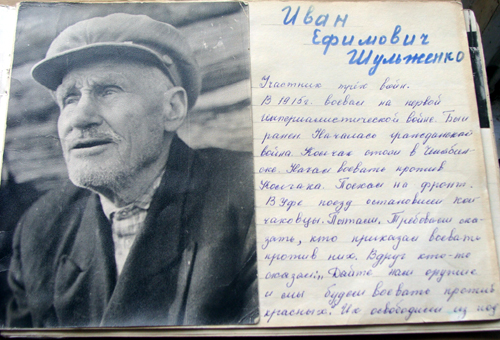 Иван
Ефимович
Шульженко
Участник трёх войн.
В 1915г. воевал на первой
империалистической войне. Был
ранен. Началась гражданская
война. Колчак стоял в Челябин-
ске. Начал воевать против
Колчака. Поехал на фронт.
В Уфе поезд остановили кол-
чаковцы. Пытали. Требовали ска-
зать, кто приказал воевать
против них. Вдруг кто-то
сказал: „Дайте нам оружие
и мы будем воевать против
красных". Их освободили из под